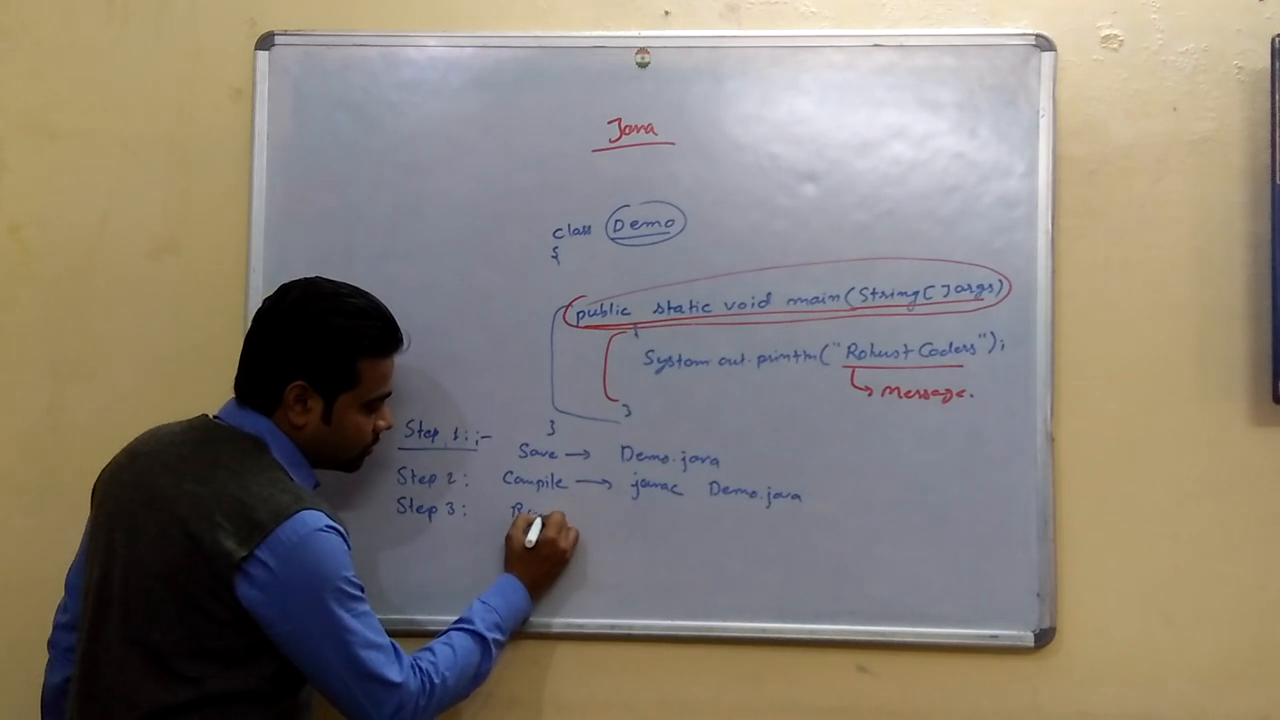 Java
class Demo
{
public static void main(String[]args)
{
System.out.println("Robust Coders");
→ Message.
}
}
Step 1:- Save → Demo.java
Step 2: Compile → javac Demo.java
Step 3: